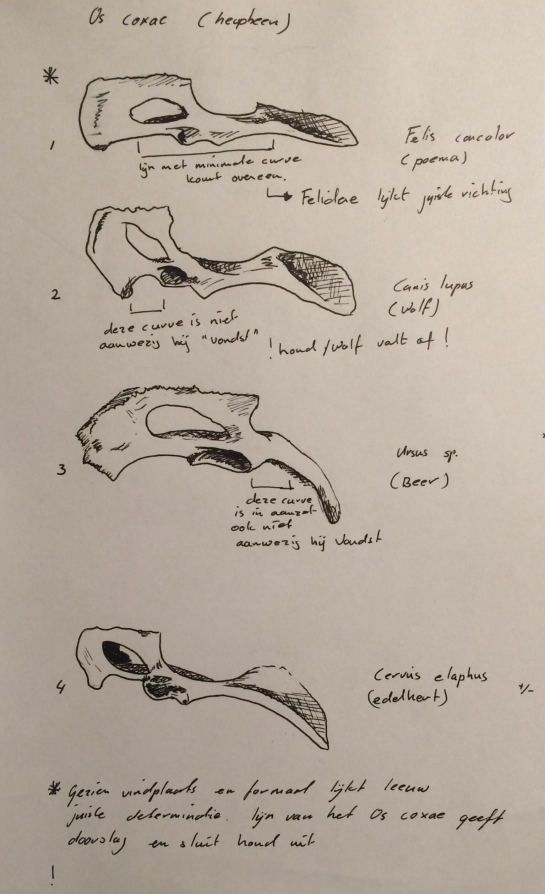 Os coxae (heupbeen)
*
1
Felis concolor
(poema)
lijn met minimale curve
komt overeen.
Felidae lijkt juiste richting
2
Canis lupus
(wolf)
deze curve is niet
aanwezig bij "vondst"
! hond/wolf valt af!
3
Ursus sp.
(Beer)
deze curve
is in aanzet
ook niet
aanwezig bij vondst
4
Cervus elaphus
(edelhert)
+/-
* Gezien vindplaats en formaat lijkt leeuw
juiste determinatie. lijn van het Os coxae geeft
doorslag en sluit hond uit
!